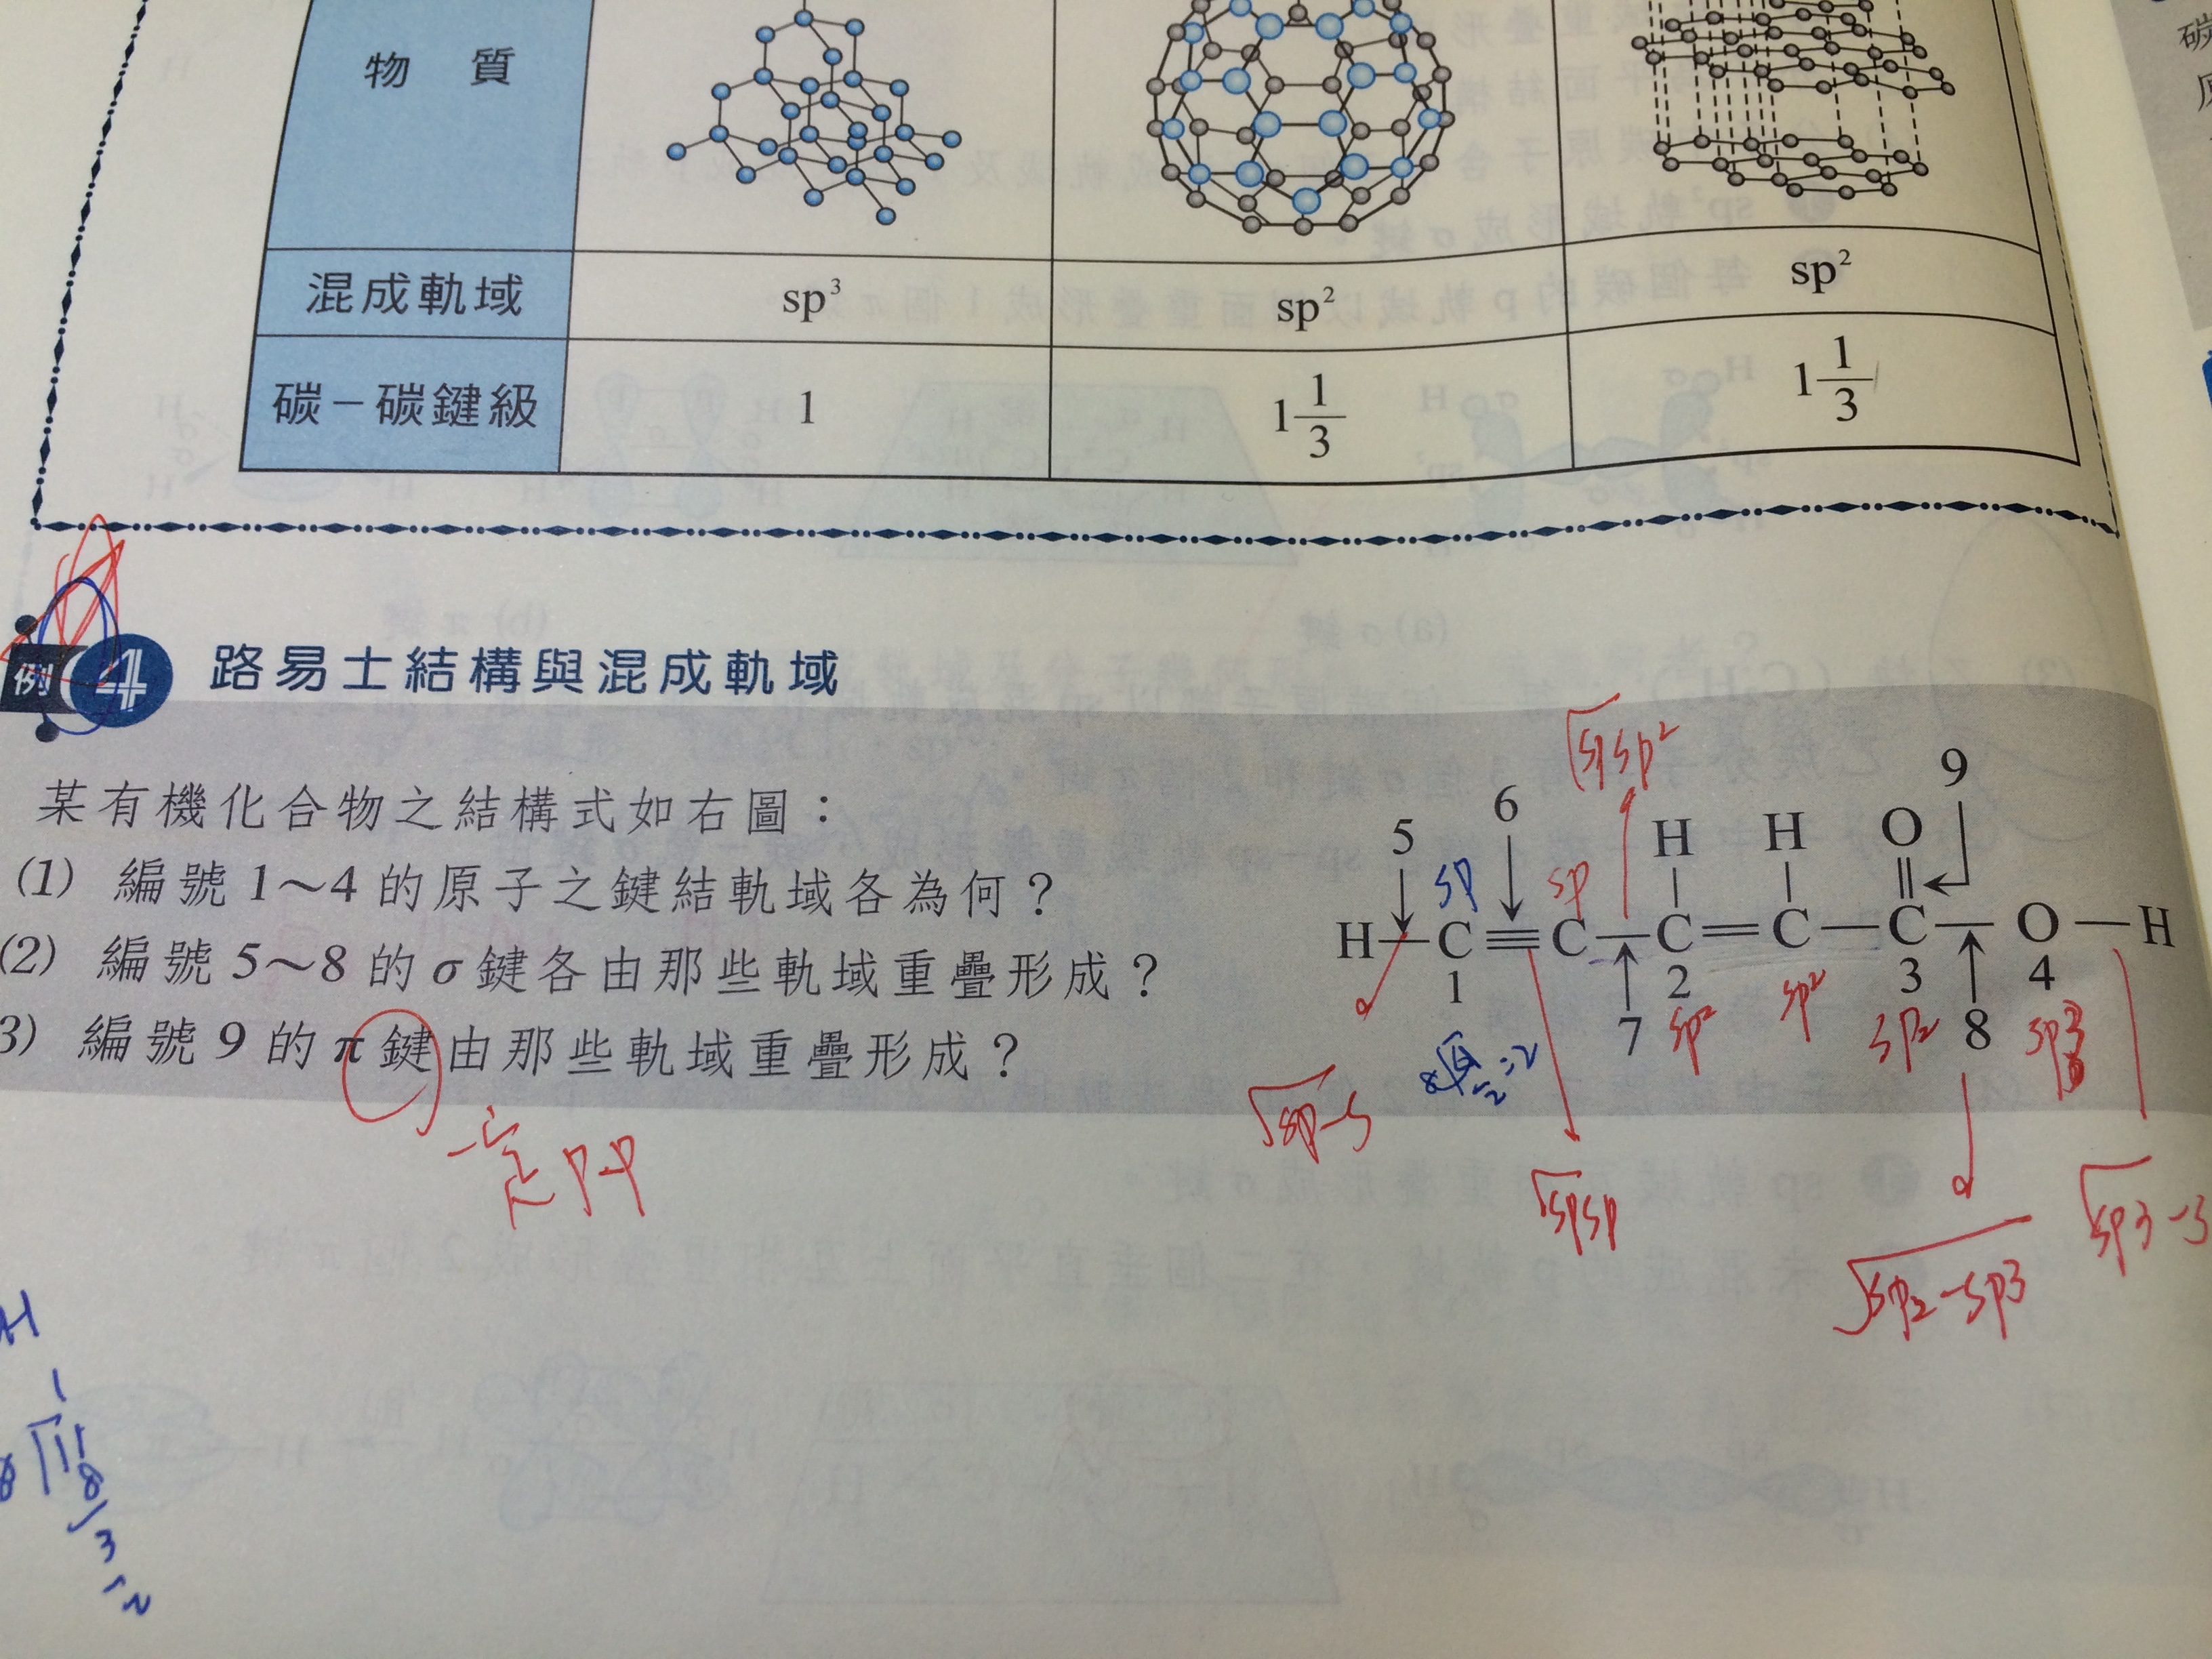 物 質
混成軌域 sp³ sp² sp²
碳－碳鍵級 1 1 1/3 1 1/3
例 4 路易士結構與混成軌域
某有機化合物之結構式如右圖：
(1) 編號1～4的原子之鍵結軌域各為何？
(2) 編號5～8的σ鍵各由那些軌域重疊形成？
3) 編號9的π鍵由那些軌域重疊形成？
一定 p-p
sp sp²
9
6
5 H H O
sp sp
H－C≡C－C＝C－C－O－H
1 2 3 4
7 8
sp² sp² sp2 sp3
sp-s
spsp
sp2-sp3
sp3-s
H
碳